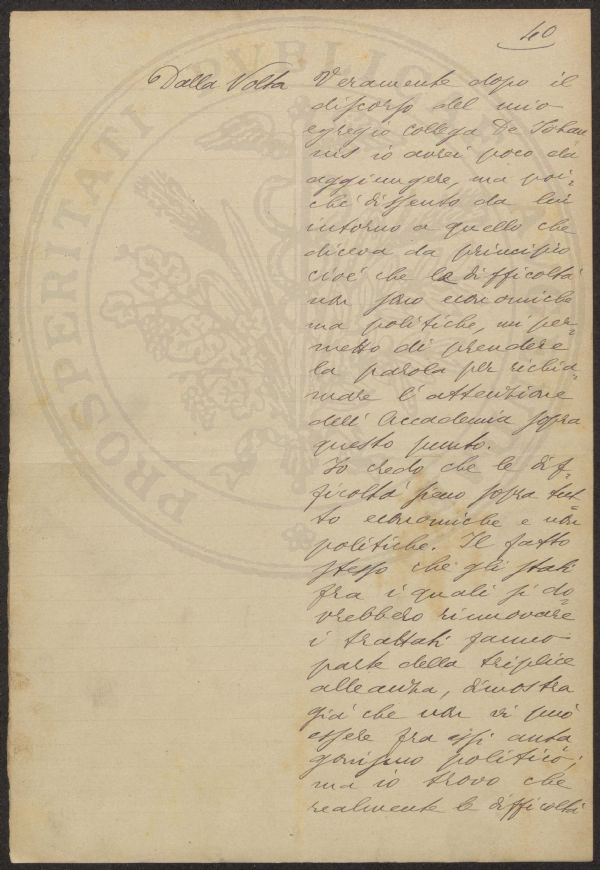 40
Dalla Volta Veramente dopo il
discorso del mio
egregio collega De Johan
nis io avrei poco da
aggiungere, ma poi-
ché dissento da lui
intorno a quello che
diceva da principio
cioé che le difficoltá
non sono economiche
ma politiche, mi per-
metto di prendere
la parola per richia-
mare l'attenzione
dell'Accademia sopra
questo punto.
Io credo che le dif-
ficoltá siano sopra tut-
to economiche e non
politiche. Il fatto
stesso che gli stati
fra i quali si do-
vrebbero rinnovare
i trattati fanno
parte della triplice
alleanza, dimostra
giá che non vi puó
essere fra essi anta
gonismo politico;
ma io trovo che
realmente le difficoltá
PROSPERITATI PVBLICAE